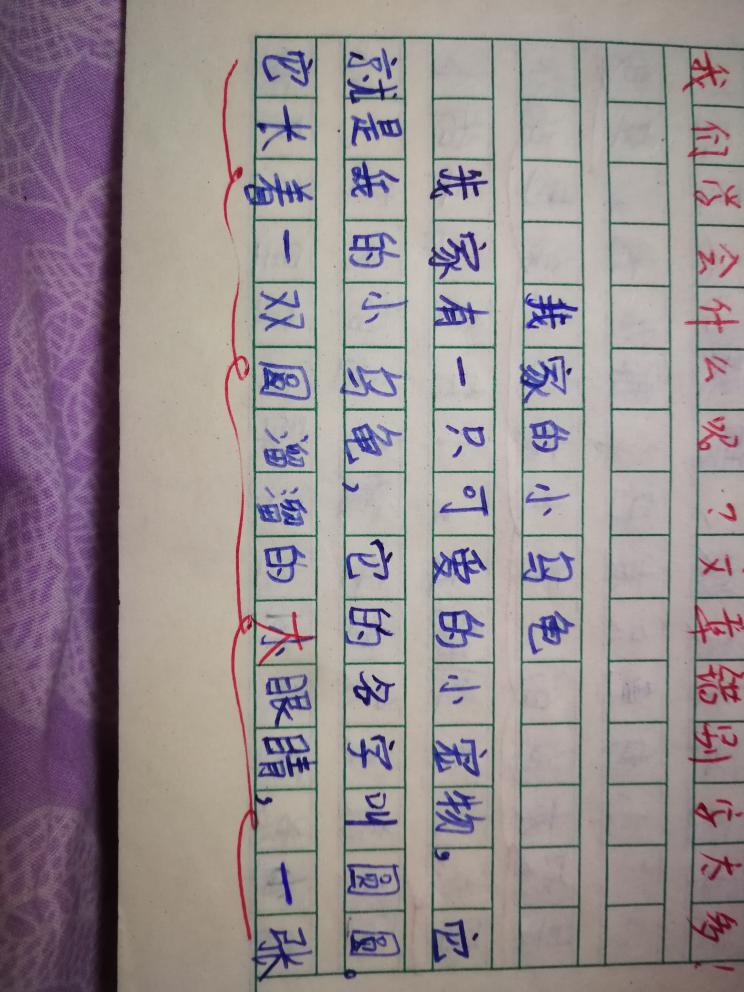 我们学会什么呢？文章错别字太多！
我家的小乌龟
我家有一只可爱的小宠物，它
就是我的小乌龟，它的名字叫圆圆。
它长着一双圆溜溜的大眼睛，一张